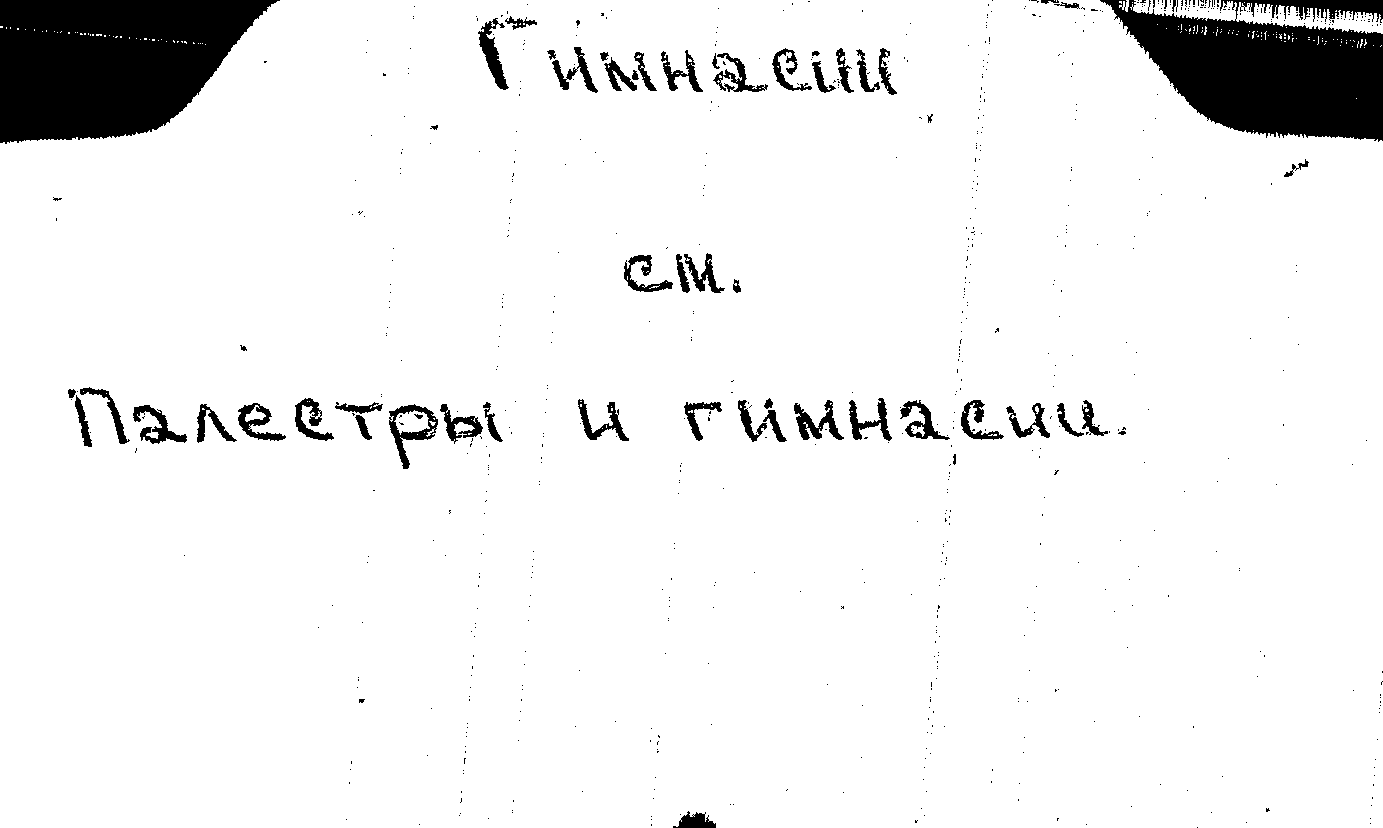 Гимнасии
см.
Палестры и гимнасии.